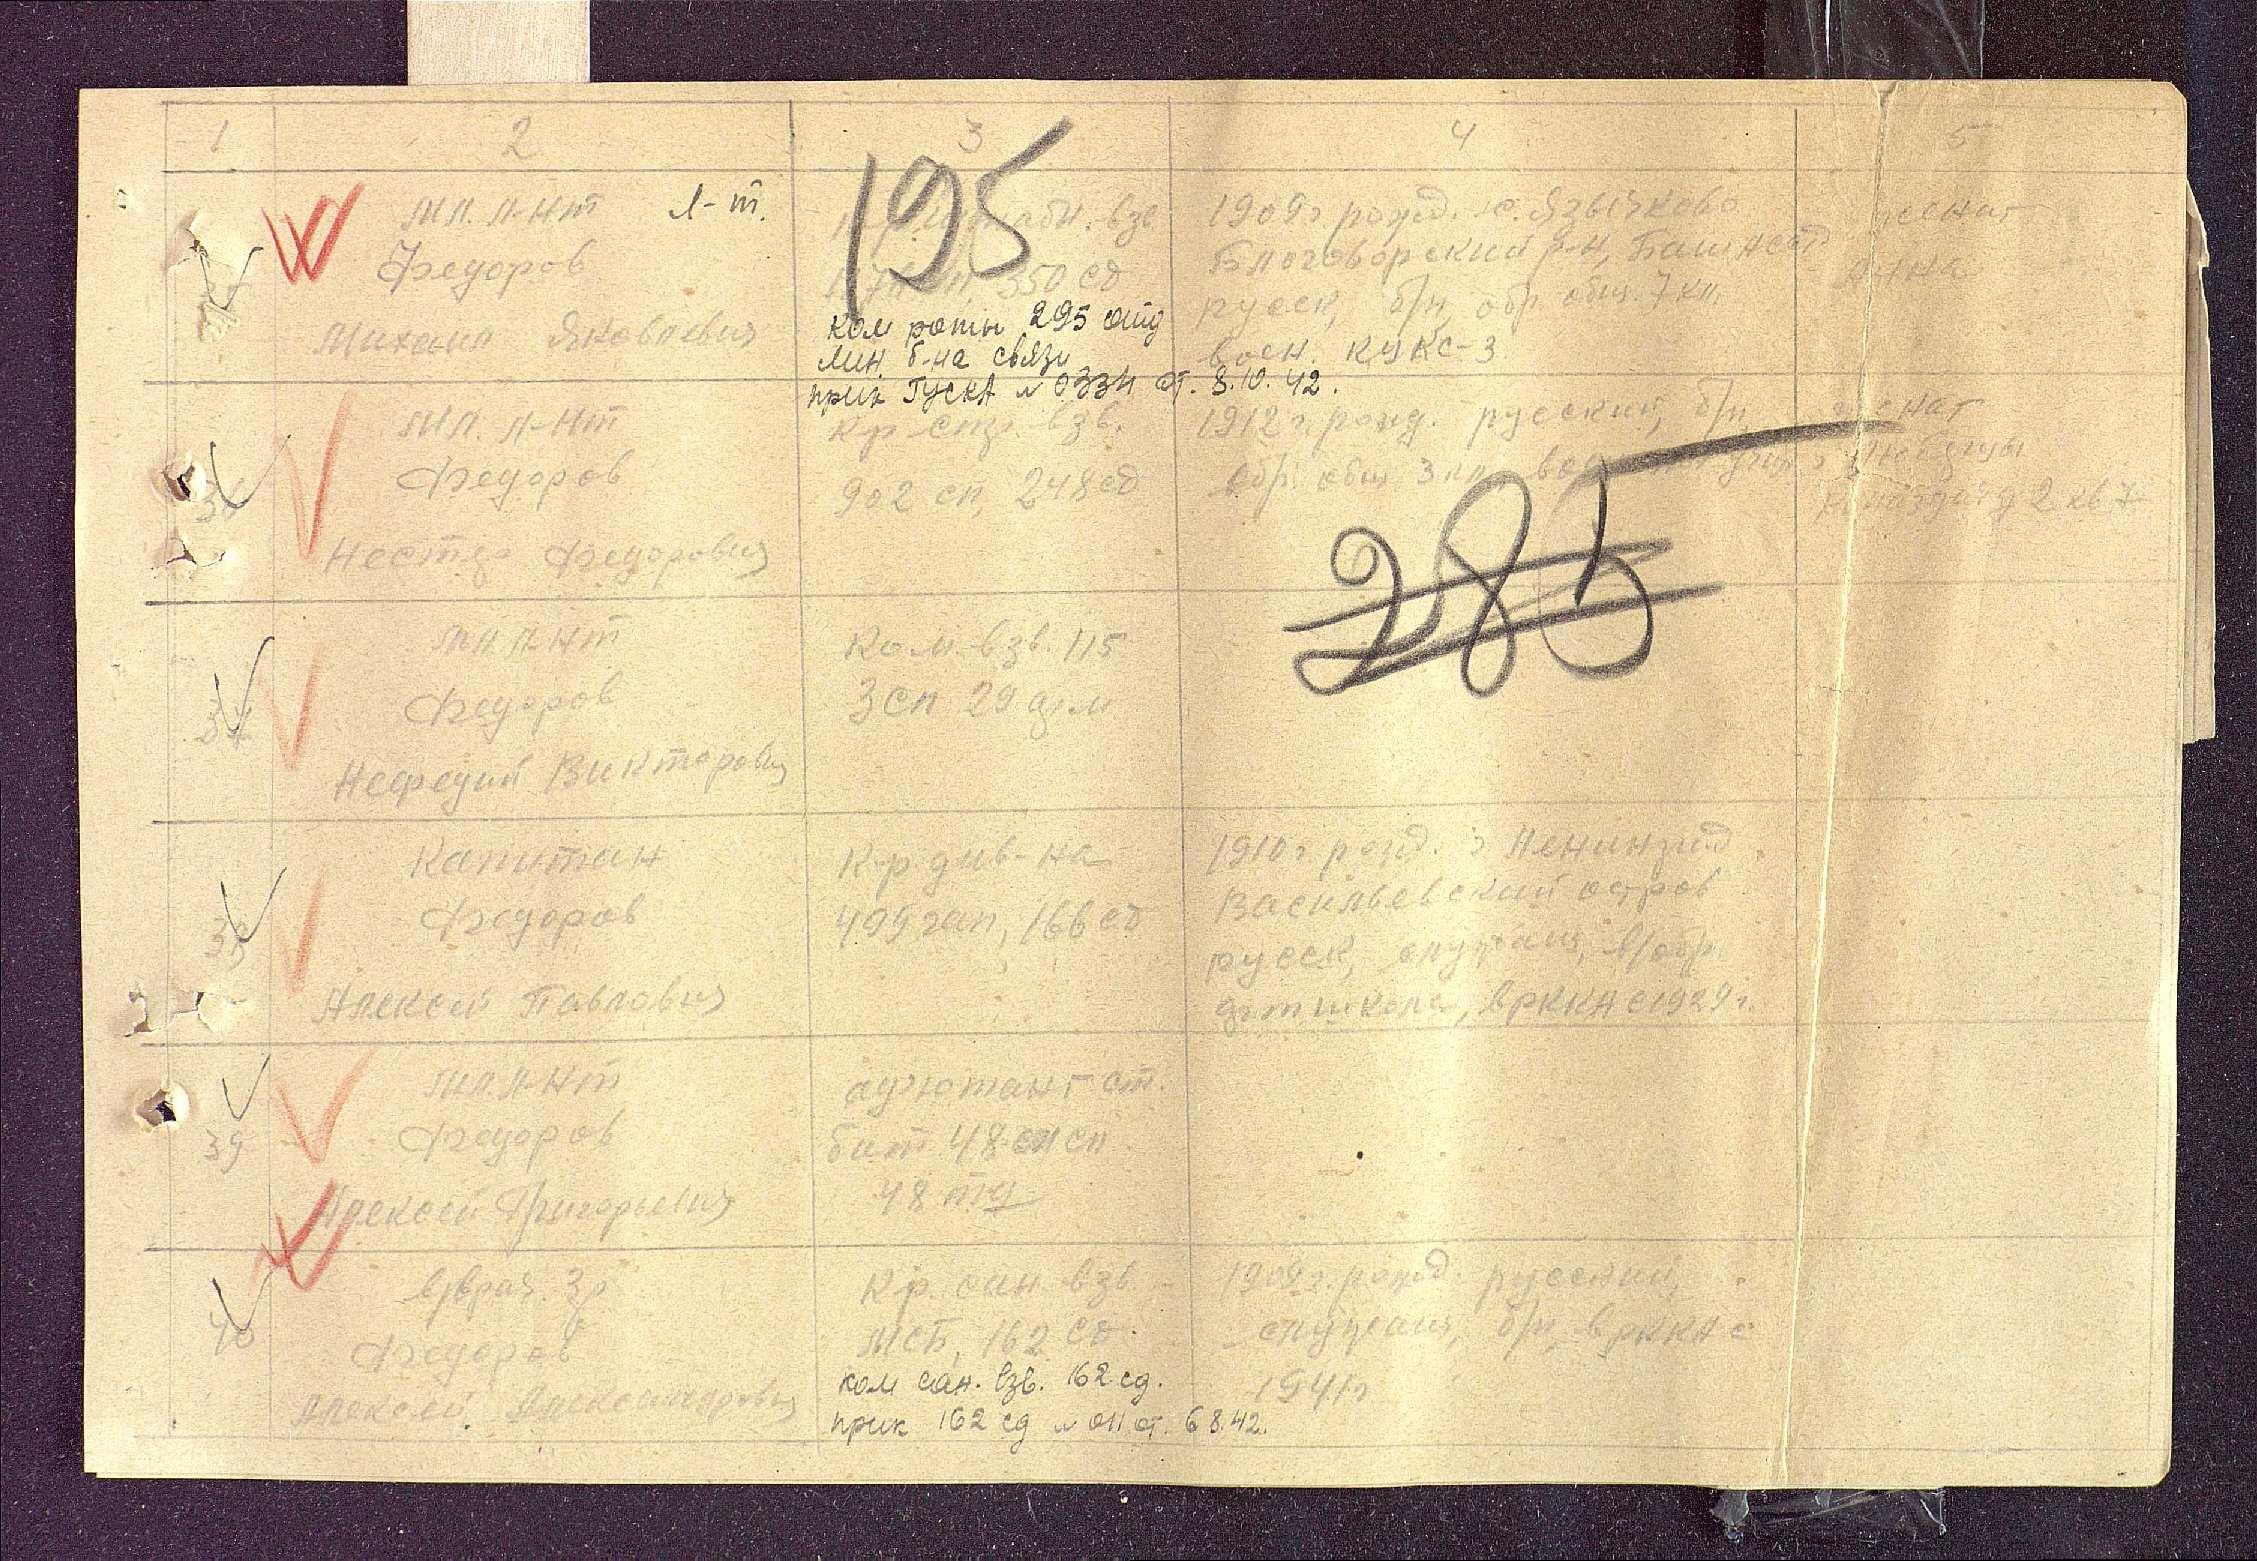 1 2 3 4 5
195
мл. л-нт л-т.
Федоров
Михаил Яковлевич
взв
350 сд
ком роты 295 отд
лин. б-на связи
прик ГУСКА № 0334 от. 8.10.42.
1909 г рожд. с. Языково
Благоворский р-н, Башнст
русск, б/п, обр. общ. 7 кл.
воен. КУКС-3.
женат
Анна
36
мл. л-нт
Федоров
Нестер Федорович
к-р взв.
902 сп, 248 сд
1912 г. рожд. русский, б/п,
обр. общ 3 кл
женат
д 2 кв 7
285
37
мл л-нт
Федоров
Мефодий Викторович
Ком. взв. 115
зсп 29
38
Капитан
Федоров
Алексей Павлович
К-р див-на
499 гап, 166 сд
1910 г рожд. г Ленинград
Васильевский остров
русск, служащ,
школа, в РККА с 1929 г.
39
мл. л-нт
Федоров
Алексей Григорьевич
адютант ст.
бат 48 сп
48 тд
40
в/врач. 3 р
Федоров
Алексей Александрович
К-р. сан взв
МСБ, 162 сд
ком сан. взв. 162 сд.
прик 162 сд № 011 от. 6 8.42.
1909 г. рожд. русский,
служащ, б/п, в РККА с
1941 г